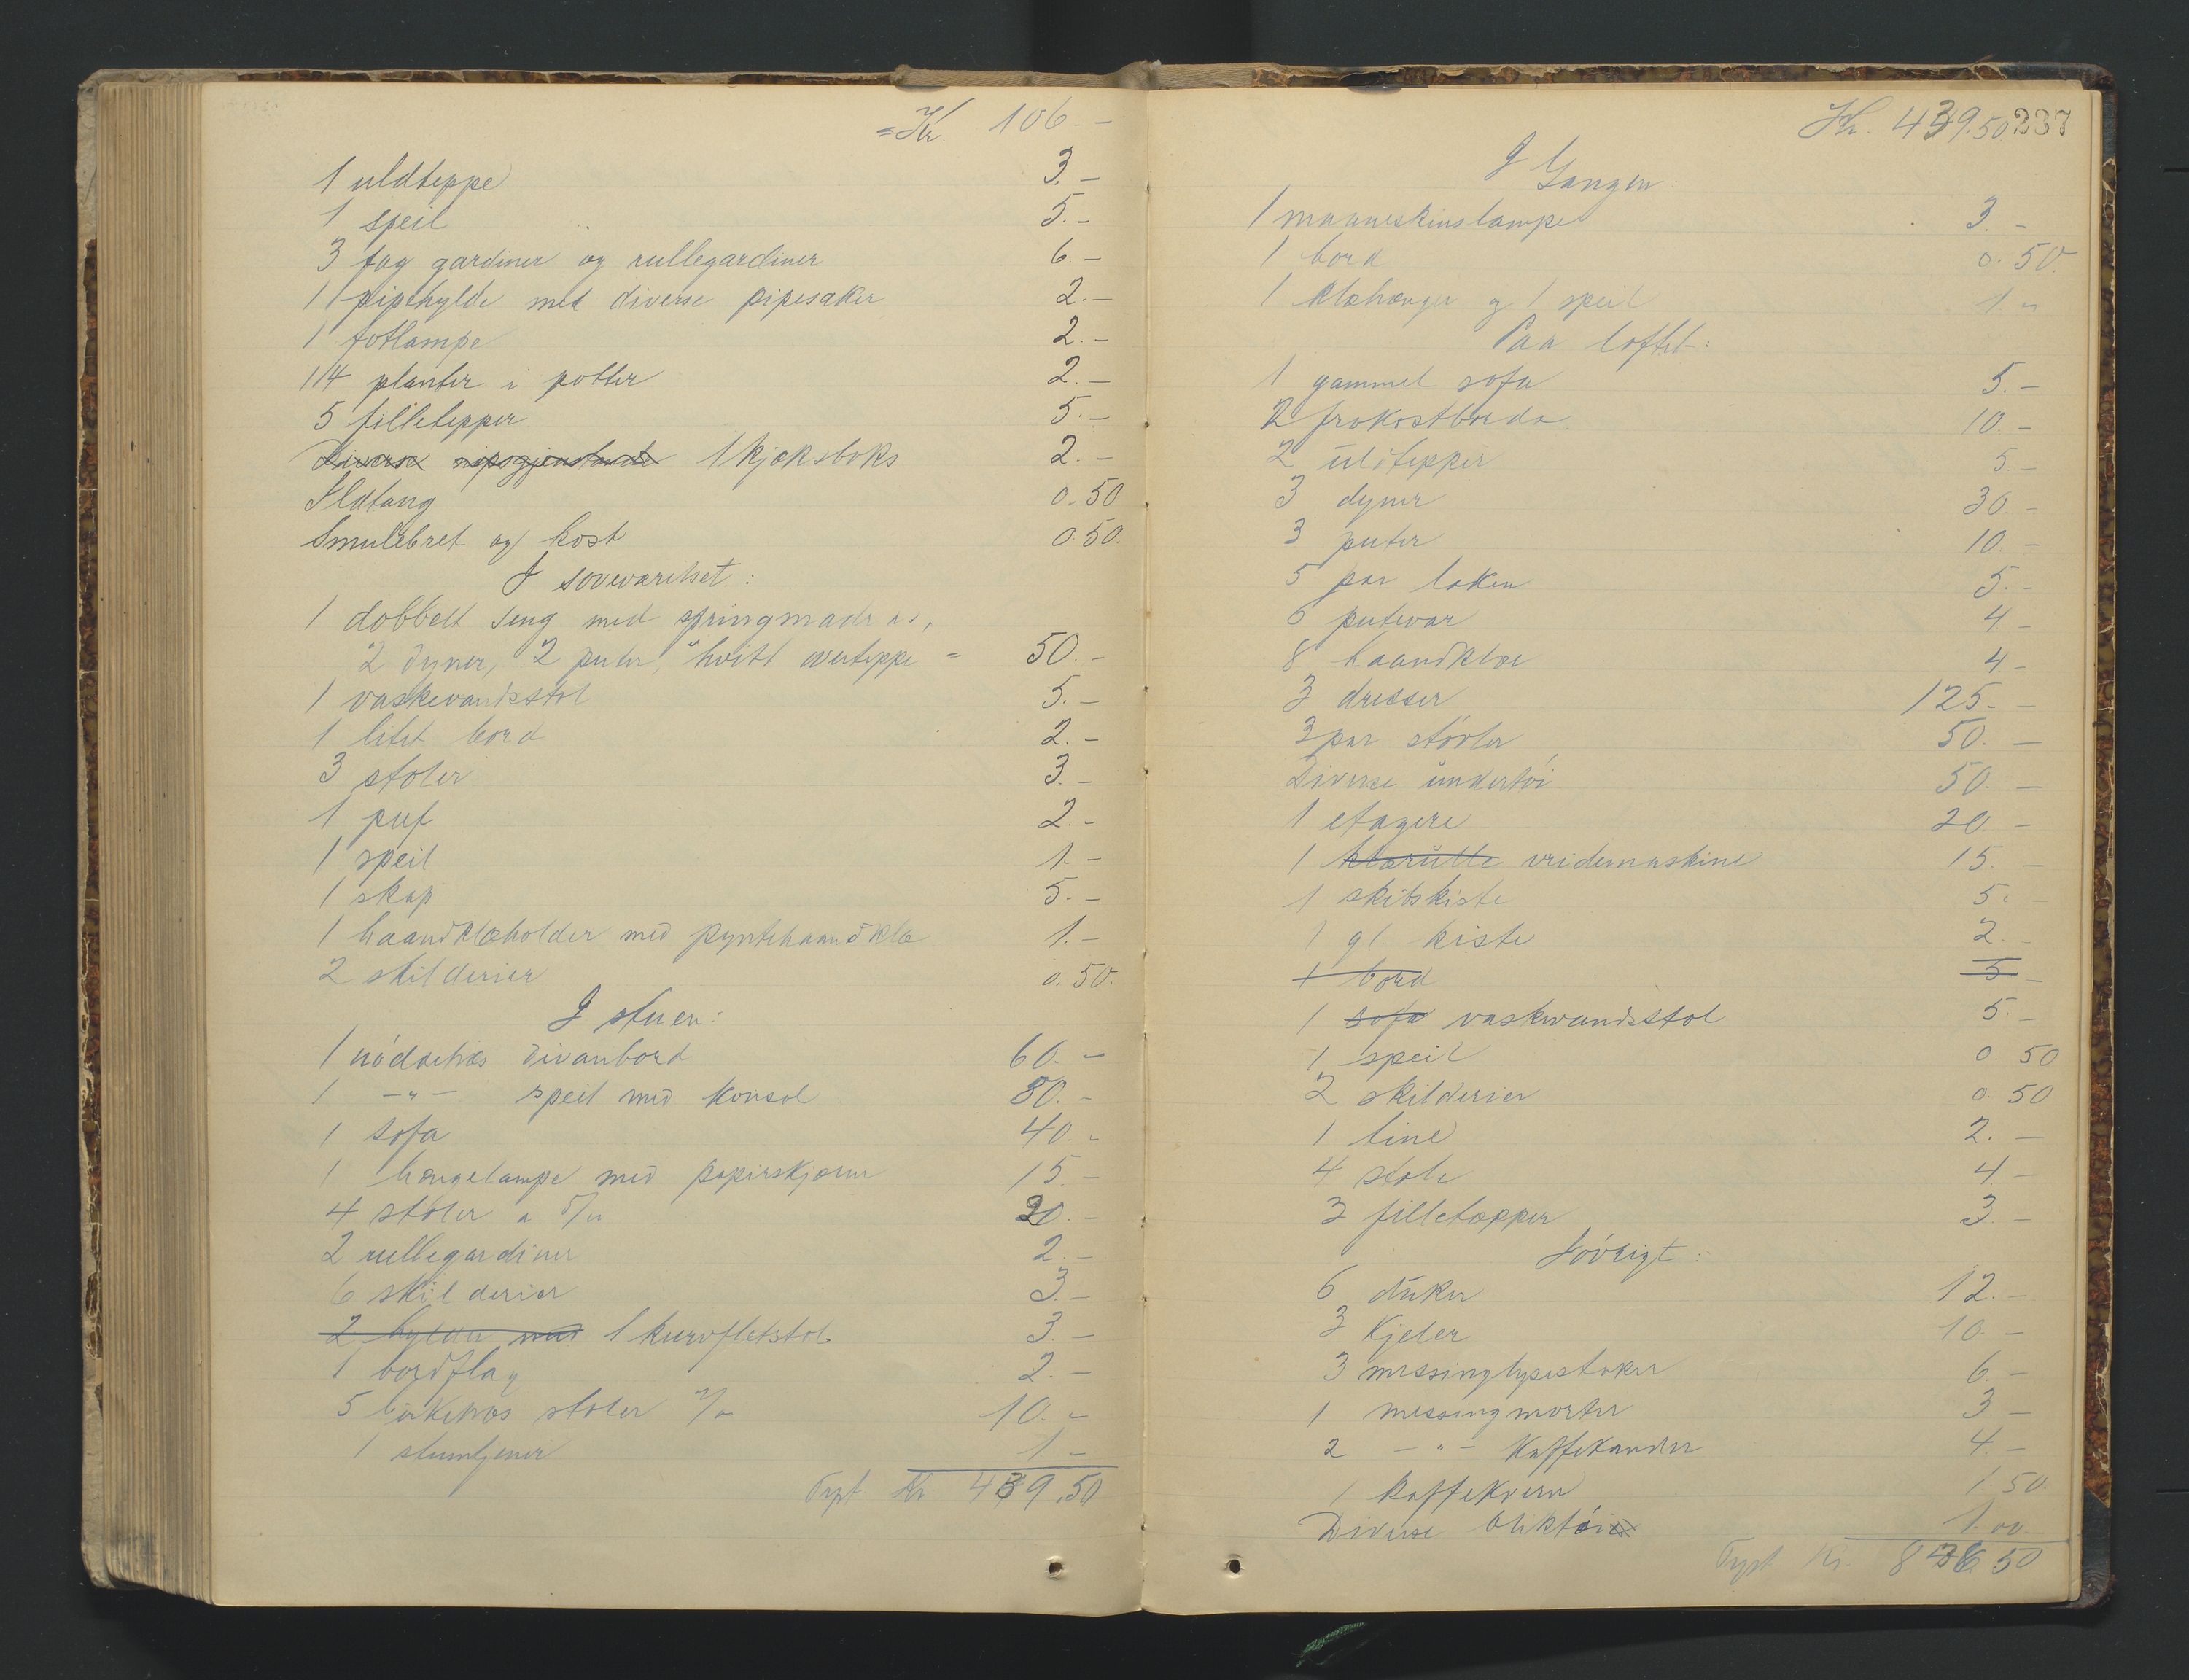 = Kr. 106.-
1 uldteppe 3.-
1 speil 5.-
3 fag gardiner og rullegardiner 6.-
1 pipehylde med diverse pipesaker 2.-
1 fotlampe 2.-
14 planter i potter 2.-
5 filletepper 5.-
Diverse nipsgjenstande 1 kjæksboks 2.-
Ildtang 0.50
Smulebret og kost 0.50.
I soveværelset:
1 dobbelt seng med springmadras,
2 dyner, 2 puter, hvitt overteppe = 50.-
1 vaskevandsstol 5.-
1 litet bord 2.-
3 stoler 3.-
1 puf 2.-
1 speil 1.-
1 skap 5.-
1 haandklæholder med pyntehaandklæ 1.-
2 skilderier 0.50.
I stuen:
1 nöddetræs divanbord 60.-
1 -"- speil med konsol 80.-
1 sofa 40.-
1 hængelampe med papirskjærm 15.-
4 stoler a 5/00 20.-
2 rullegardiner 2.-
6 skilderier 3.-
2 hylder med 1 kurvfletstol 3.-
1 bordflag 2.-
5 birketræs stoler 2/00 10.-
1 stumtjener 1.-
Trpt. Kr 439.50
Kr. 439.50 237
I Gangen:
1 maaneskinslampe 3.-
1 bord 0.50.
1 klæhænger og 1 speil 1 "
Paa loftet:
1 gammel sofa 5.-
2 frokostborde 10.-
2 uldtepper 5.-
3 dyner 30.-
3 puter 10.-
5 par laken 5.-
6 putevar 4-
8 haandklær 4-
3 dresser 125.-
3 par støvler 50.-
Diverse undertöi 50.-
1 etagere 20.-
1 klærulle vridemaskine 15.-
1 skibskiste 5.-
1 gl. kiste 2.-
1 bord 5-
1 sofa vaskevandsstol 5.-
1 speil 0.50
2 skilderier 0.50
1 tine 2.-
4 stole 4.-
3 filletæpper 3.-
Iövrigt:
6 duker 12.-
3 Kjeler 10.-
3 messinglysestaker 6.-
1 messingmorter 3-
2 -"- Kaffekander 4.-
1 kaffekvern 1.50.
Diverse bliktöi 1.00
Trpt Kr. 836.50